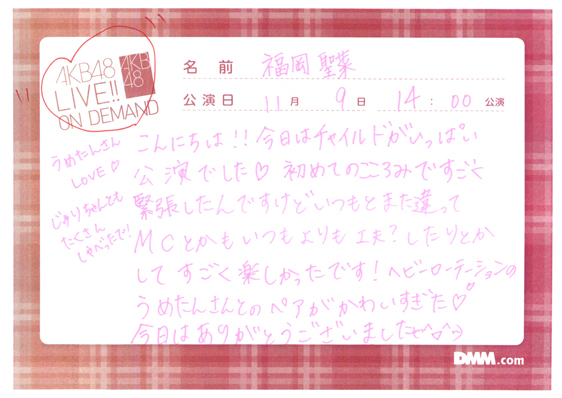 AKB48
LIVE!!
ON DEMAND
AKB
48
名前 福岡 聖菜
公演日 11月 9日 14:00 公演
うめたんさん
LOVE♡
じゅりちゃんとも
たくさん
しゃべったで!
こんにちは!!今日はチャイルドがいっぱい
公演でした♡ 初めてのころみですごく
緊張したんですけどいつもとまた違って
MCとかもいつもよりも工夫?したりとか
してすごく楽しかったです!ヘビーローテーションの
うめたんさんとのペアがかわいすぎた♡
今日はありがとうございました
DMM.com